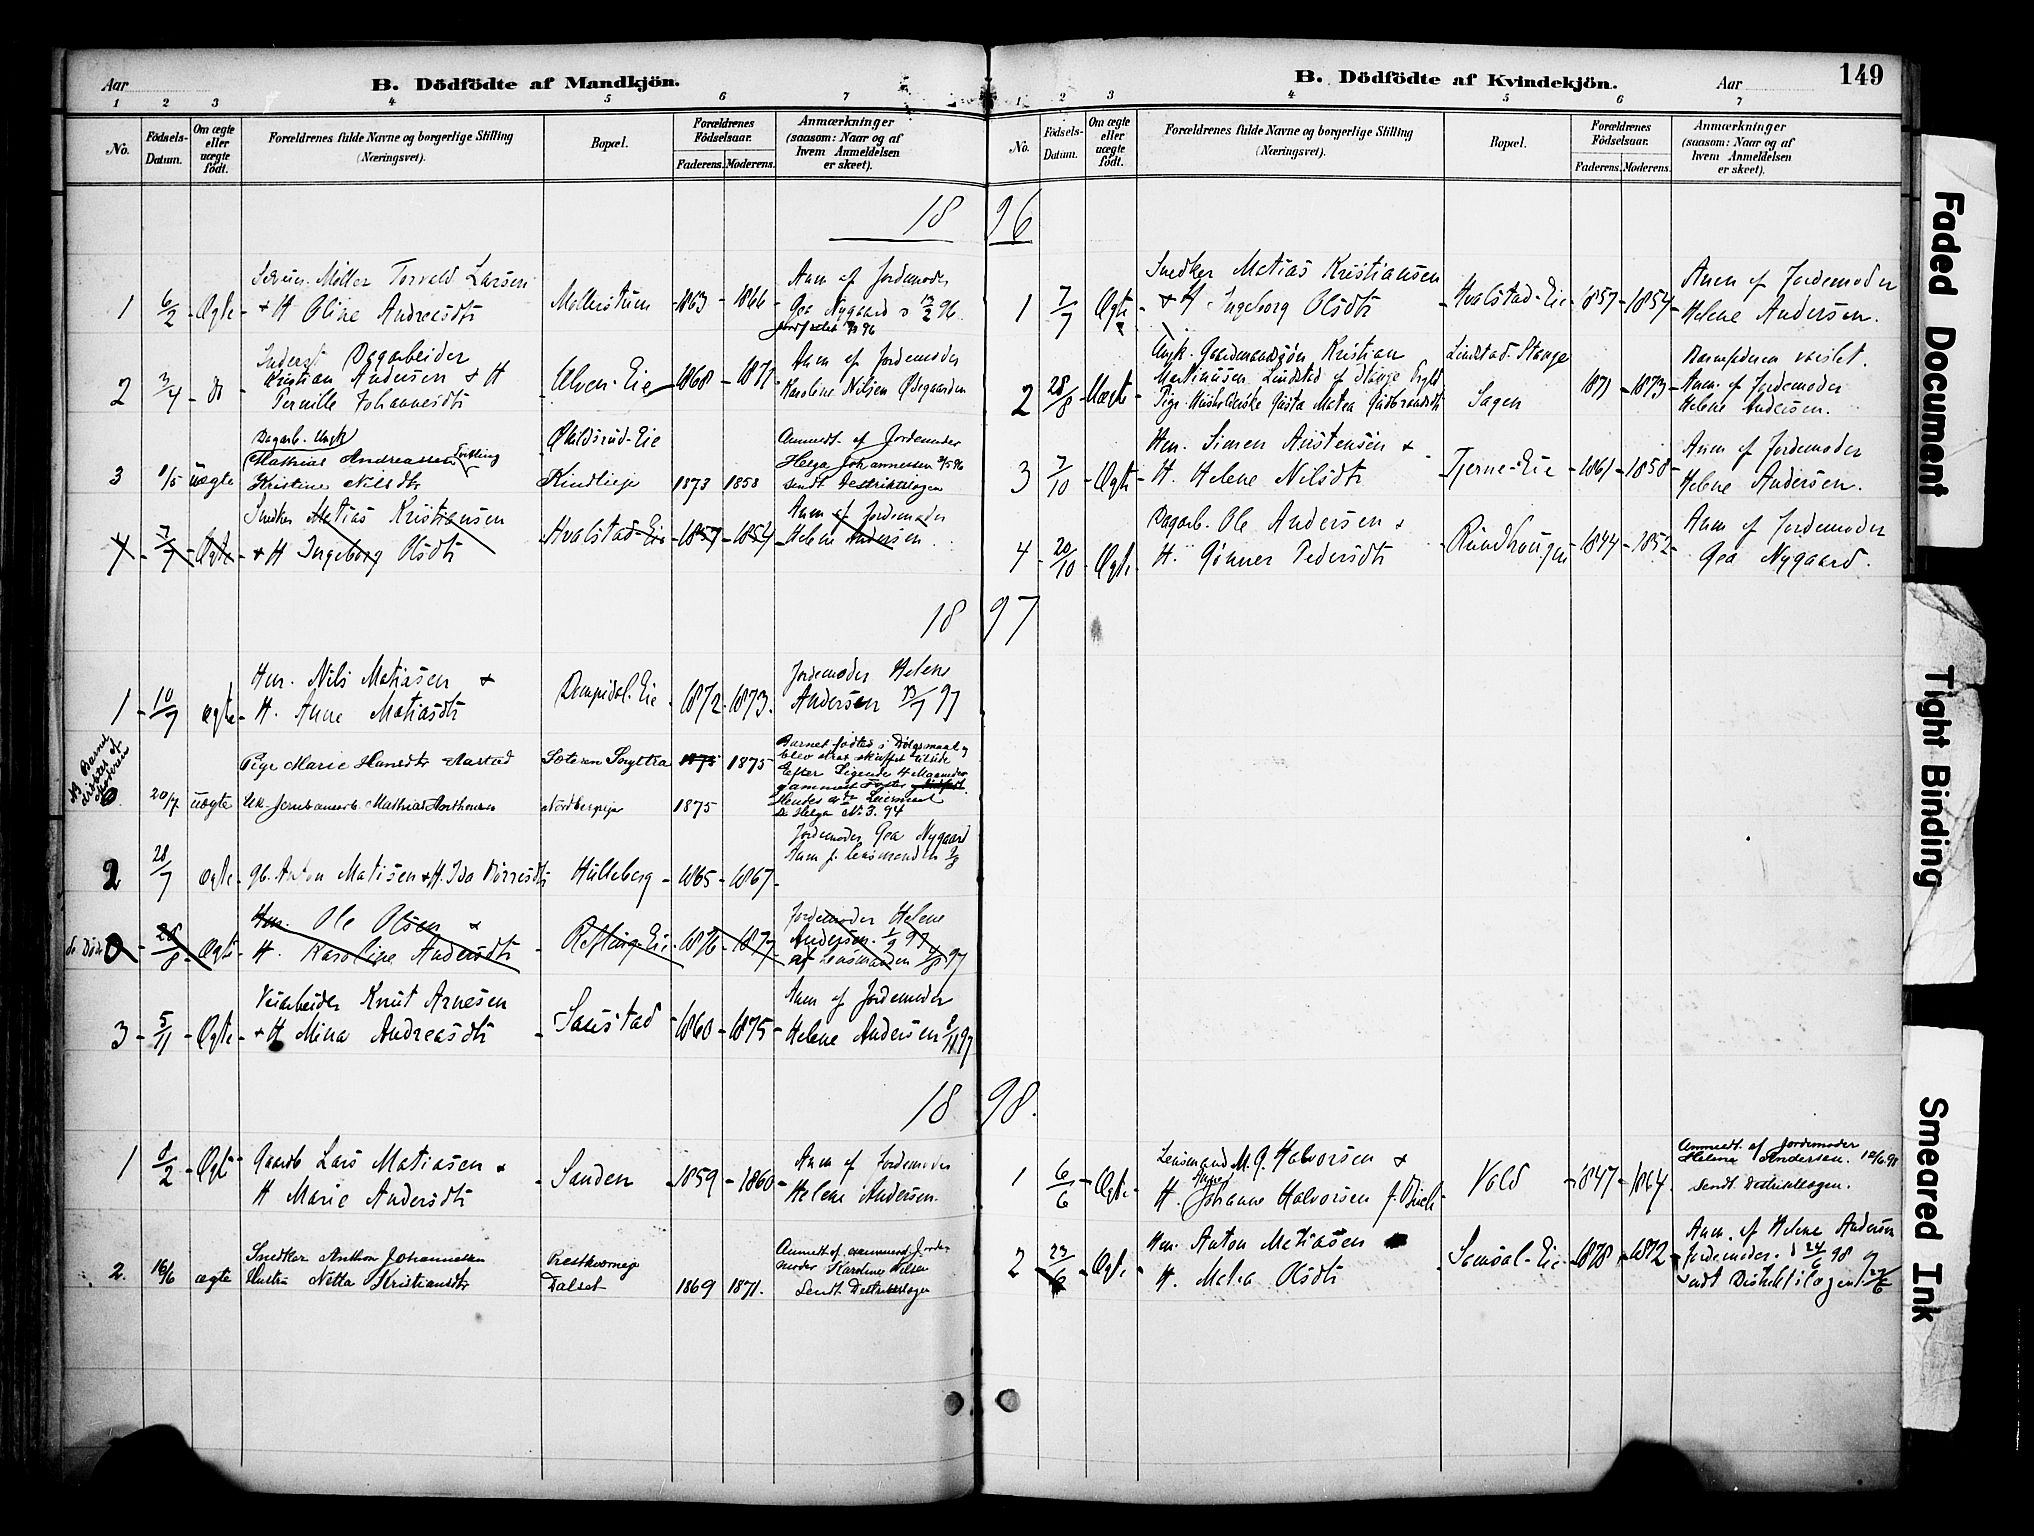 Aar
B. Dödfödte af Mandkjön.
1 2 3 4 5 6 7
No.
Födsels-Datum.
Om ægte eller uægte födt.
Forældrenes fulde Navne og borgerlige Stilling (Næringsvei).
Bopæl.
Forældrenes Födselsaar.
Faderens. Moderens.
Anmærkninger (saasom: Naar og af hvem Anmeldelsen er skeet).
18
1 6/2 Ægte Møller Torvald Larsen
+ H Oline Andreasdtr 1863 - 1866
Anm af Jordemoder
Gea Nygaard 13/2 96
2 3/4 Do Inderst Dagarbeider
Kristian Andersen + H
Pernille Johannesdtr
Alven-Eie 1868 - 1871
Anm af Jordemoder
Karoline Nilsen Ødegaarden
3 uægte Dagarb. Ungk.
Mathias Andreassen
Kristine Nilsdtr
1873 1858
Anmeldt af Jordemoder
Helga Johannessen
sendt Distriktslægen
4 7/7 Ægte Snedker Matias Kristiansen
+ H Ingeborg Olsdtr
Hvalstad-Eie 1857 - 1854
Anm af Jordemoder
Helene Andersen
18
1 10/7 ægte Hm. Nils Matiasen +
H. Anne Matiasdtr
1872 - 1873.
Jordemoder Helene
Andersen 13/7 97
20/7 uægte Pige Marie Hansdtr Aastad
Mathias Anthonsen
1875 1875
Barnet fødtes i Dølgsmaal og
2 28/7 ægte Gb. Anton Matisen + H. Ida Børresdtr
Hulleberg 1865 - 1867
Jordemoder Gea Nygaard
0 28/8 Ægte Hm. Ole Olsen +
H. Karoline Andersdtr
1876 - 1877
Jordemoder Helene
Andersen 1/9 97
af Lensmanden
3 5/11 Ægte Veiarbeider Knut Arnesen
+ H Mina Andreasdtr
Saustad 1860 - 1875
Anm af Jordemoder
Helene Andersen 8/11 97
18
1 8/2 Ægte Gaardb Lars Matiasen +
H Marie Andersdtr
Sanden 1859 - 1860
Anm af Jordemoder
Helene Andersen.
2. 16/6 ægte Snedker Anthon Johannesen
Hustru Netta Kristiansdtr
Dalset 1869 1871.
Anmeldt af Jordemoder Karoline Nilsen
Sendt Distriktslægen
B. Dödfödte af Kvindekjön.
Aar
149
1 2 3 4 5 6 7
No.
Födsels-Datum.
Om ægte eller uægte födt.
Forældrenes fulde Navne og borgerlige Stilling (Næringsvei).
Bopæl.
Forældrenes Födselsaar.
Faderens. Moderens.
Anmærkninger (saasom: Naar og af hvem Anmeldelsen er skeet).
96
1 7/7 Ægte Snedker Matias Kristiansen
+ H Ingeborg Olsdtr
Hvalstad-Eie 1857 - 1854
Anm af Jordemoder
Helene Andersen.
2 28/8 Uægte Ungk. Gaardmandssøn Kristian
Martinussen Lindstad af Stange
Pige Matea Gudbrandsdtr
Lindstad Stange
Sagen 1871 - 1873
Anm. af Jordemoder
Helene Andersen.
3 7/10 Ægte Hm. Simen Austensen +
H. Helene Nilsdtr
Tjerne-Eie 1861 - 1858
Anm af Jordemoder
Helene Andersen.
4 20/10 Ægte Dagarb. Ole Andersen +
H. Gunner Pedersdtr
Rundhaugen 1844 - 1852
Anm af Jordemoder
Gea Nygaard.
97
98.
1 6/6 Ægte Lensmand M. G. Halvorsen +
H. Johanne Halvorsen
Vold 1847 - 1864
Anmeldt af Jordemoder
Helene Andersen.
sendt Distriktslægen.
2 23/6 Ægte Hm. Anton Matiasen
H. Matea Olsdtr
1878 - 1872
Anm. af Helene Andersen
Jordemoder. 24/6 98
Faded Document
Tight Binding
Smeared Ink